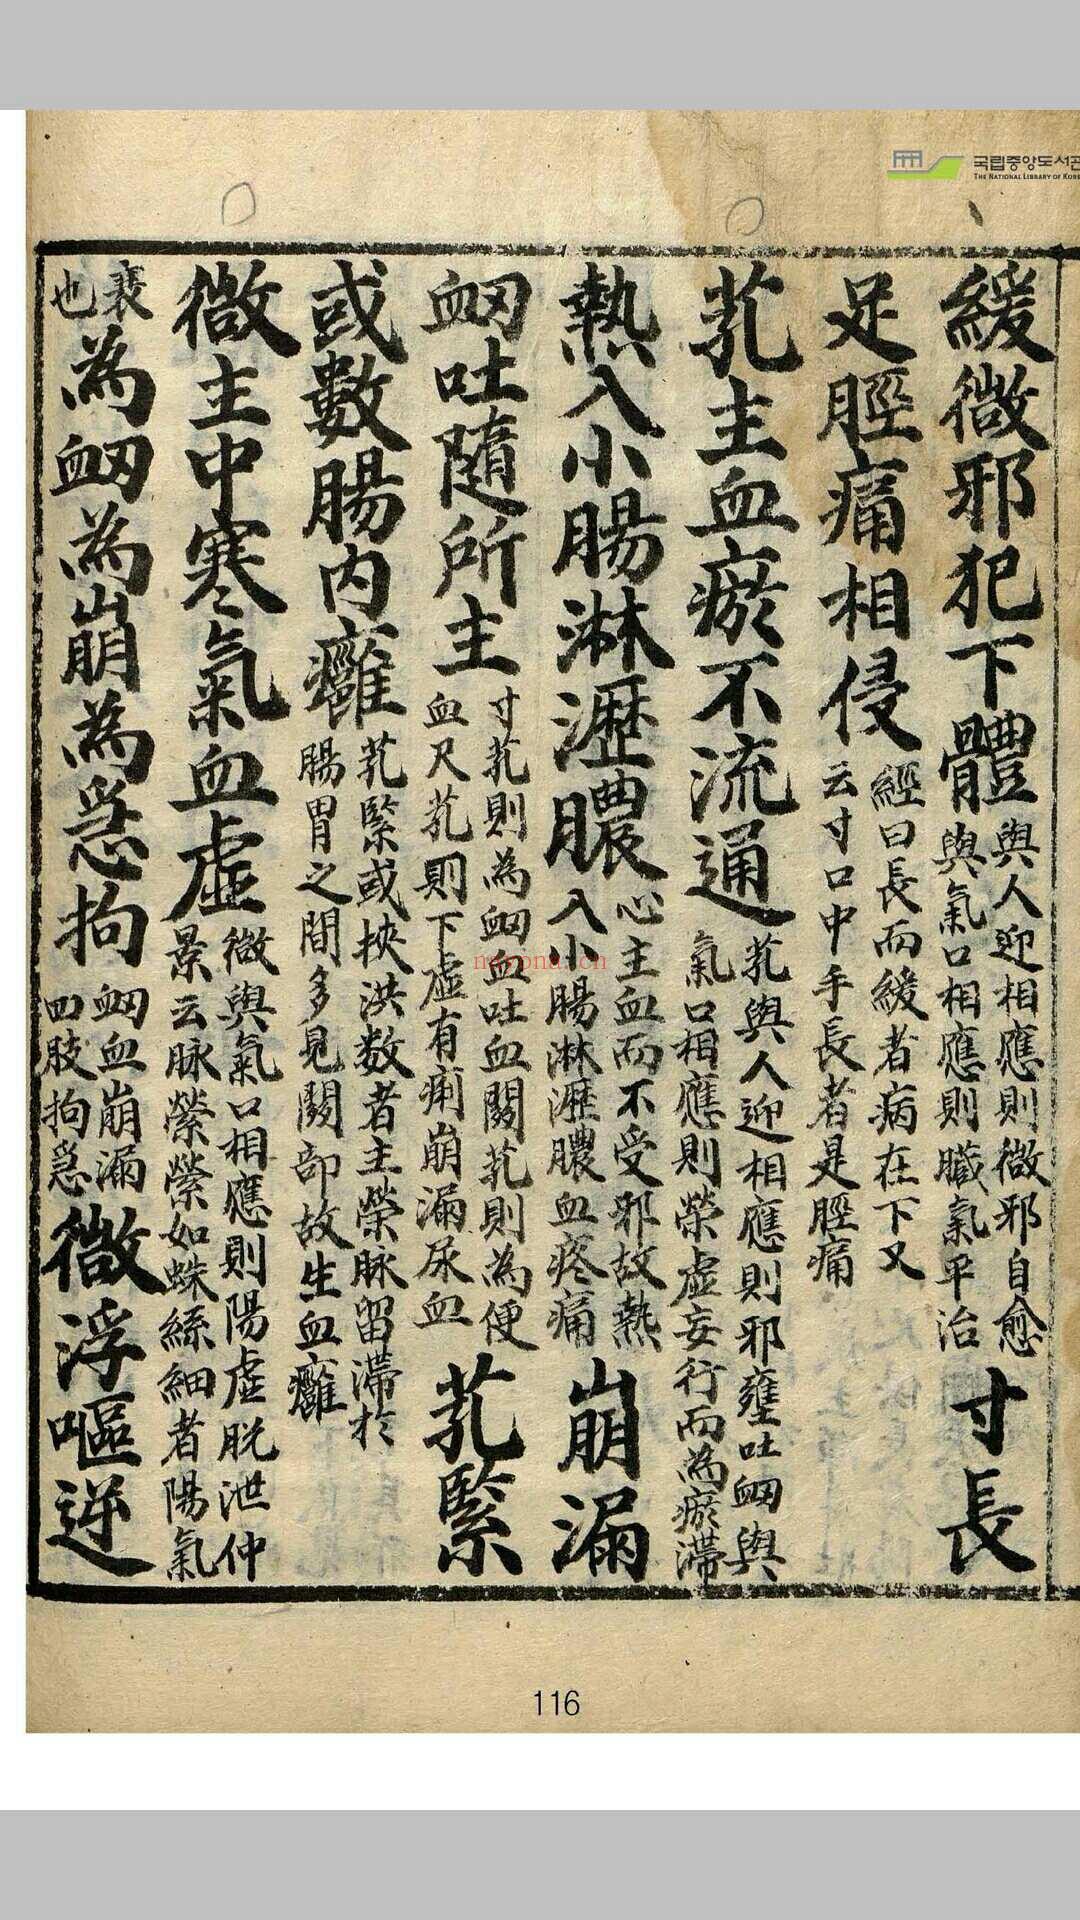 국립중앙도서관
THE NATIONAL LIBRARY OF KOREA
緩微邪犯下體與人迎相應則微邪自愈
與氣口相應則臟氣平治寸長
足脛痛相侵經曰長而緩者病在下又
云寸口中手長者是脛痛
芤主血瘀不流通芤與人迎相應則邪壅吐衂與
氣口相應則榮虛妄行而為瘀滯
熱入小腸淋瀝膿心主血而不受邪故熱
入小腸淋瀝膿血疼痛崩漏
衂吐隨所主寸芤則為衂血吐血關芤則為便
血尺芤則下虛有痢崩漏尿血芤緊
或數腸內癰芤緊或挾洪数者主榮脉留滯於
腸胃之間多見關部故生血癰
微主中寒氣血虛微與氣口相應則陽虛脫泄仲
景云脉縈縈如蛛絲細者陽氣
衰
也為衂為崩為急拘衂血崩漏
四肢拘急微浮嘔逆
nayona.cn
116